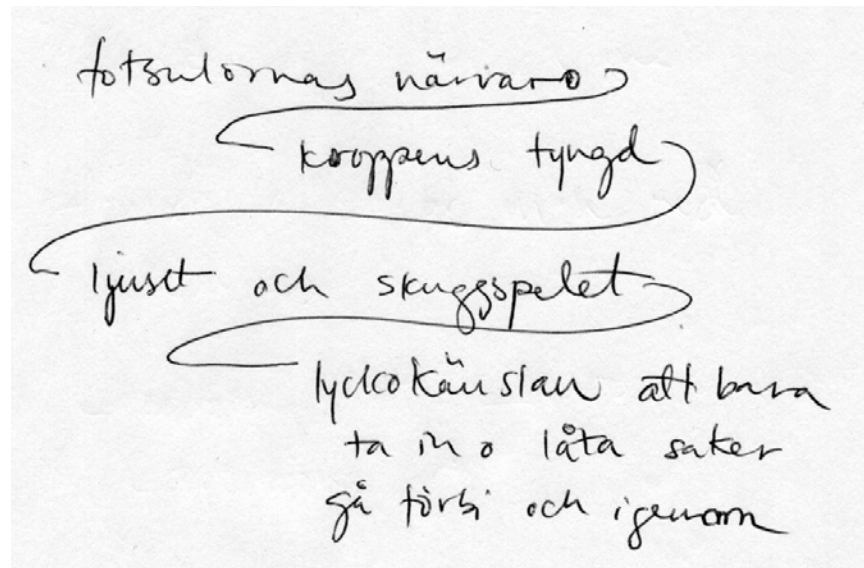 fotsulornas närvaro
kroppens tyngd
ljuset och skuggspelet
lyckokänslan att bara
ta in o låta saker
gå förbi och igenom